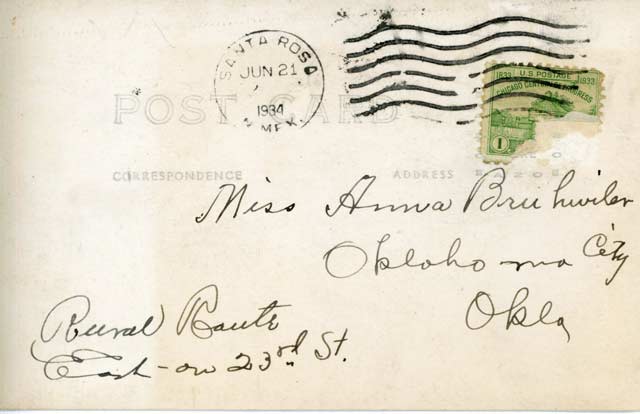 SANTA ROSA
JUN 21
1934
N. MEX.
1833 U.S. POSTAGE 1933
CHICAGO CENTURY OF PROGRESS
1
POST CARD
CORRESPONDENCE
ADDRESS
Miss Anna Bruhwiler
Oklahoma City
Okla
Rural Route
East - on 23rd St.